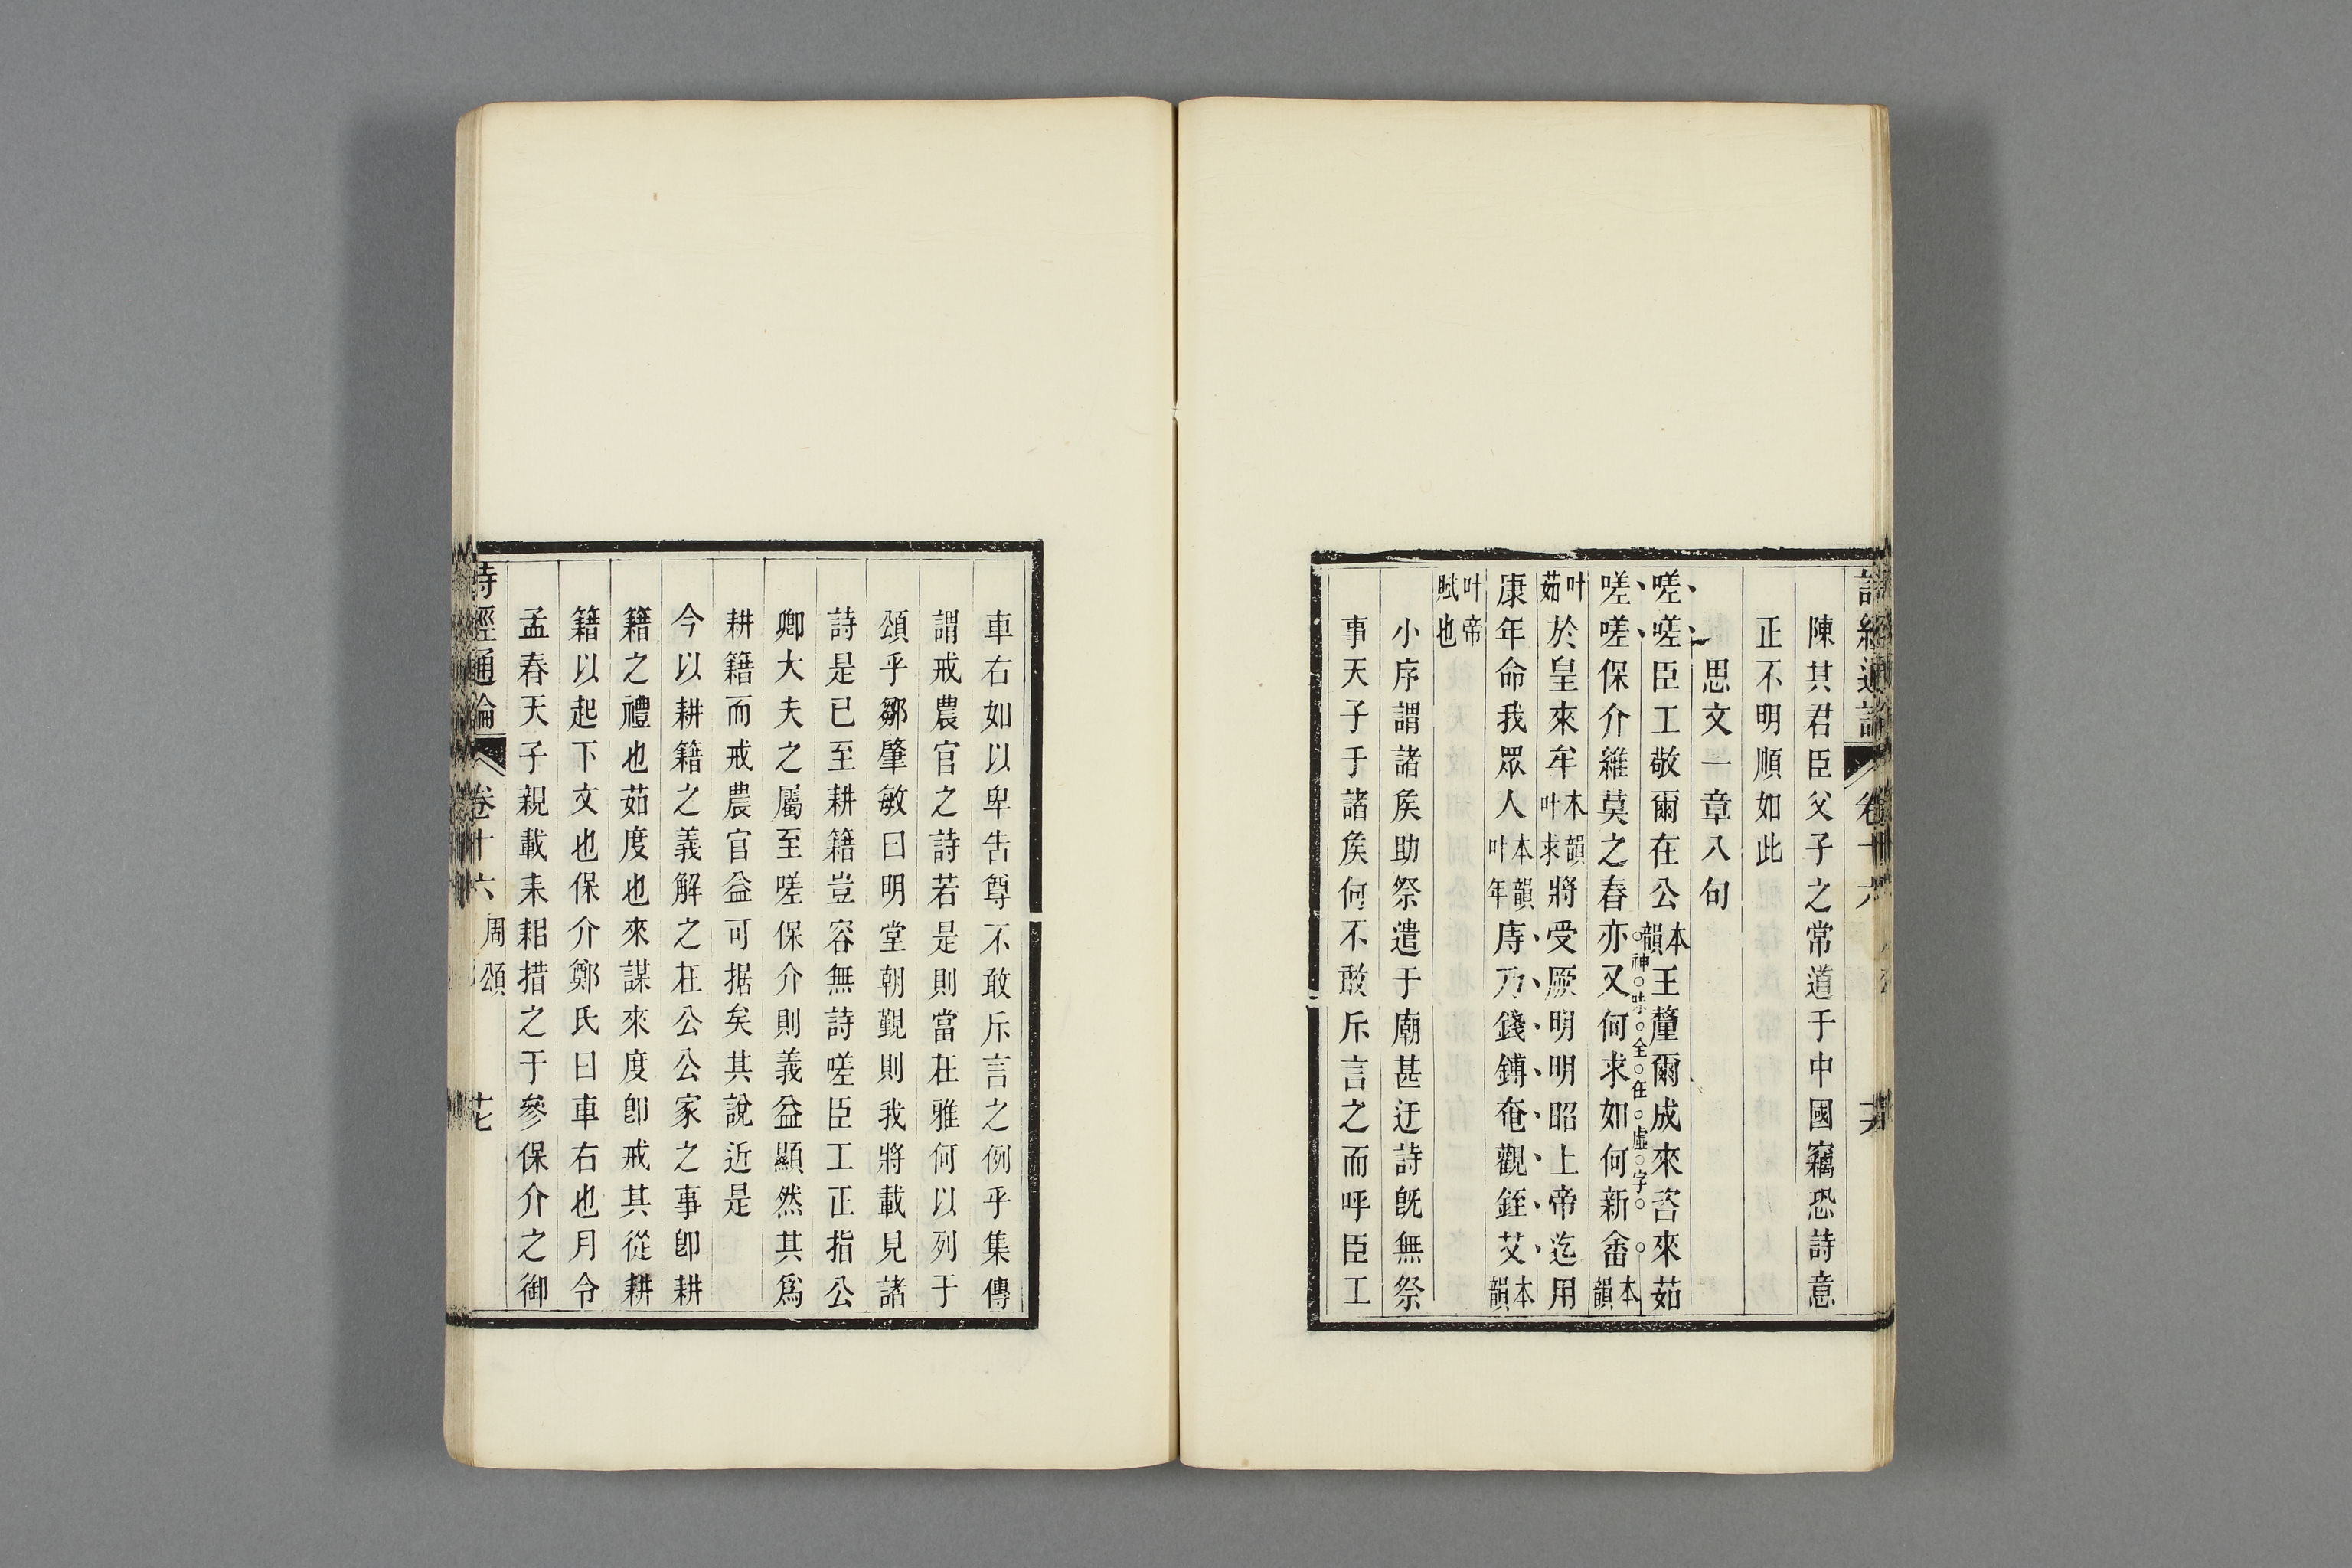 陳其君臣父子之常道于中國竊恐詩意
正不明順如此
思文一章八句
嗟嗟臣工敬爾在公本韻王釐爾成來咨來茹
神味全在虛字
嗟嗟保介維莫之春亦又何求如何新畬本韻
叶茹於皇來牟本韻叶求將受厥明明昭上帝迄用
康年命我眾人本韻叶年庤乃錢鎛奄觀銍艾本韻
叶帝賦也
小序謂諸矦助祭遣于廟甚迂詩旣無祭
事天子于諸矦何不敢斥言之而呼臣工
車右如以卑告尊不敢斥言之例乎集傳
謂戒農官之詩若是則當在雅何以列于
頌乎鄒肇敏曰明堂朝覲則我將載見諸
詩是已至耕籍豈容無詩嗟臣工正指公
卿大夫之屬至嗟保介則義益顯然其爲
耕籍而戒農官益可据矣其說近是
今以耕籍之義解之在公公家之事卽耕
籍之禮也茹度也來謀來度卽戒其從耕
籍以起下文也保介鄭氏曰車右也月令
孟春天子親載耒耜措之于參保介之御
詩經通論 卷十六 周頌 廿七